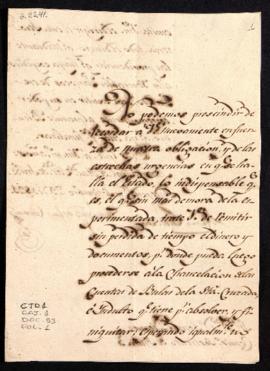 G. 2241.
1
No podemos prescindir de
recordar à V. nuevamente en fuer-
za de nuestra obligacion, y de las
estrechas urgencias en q.e se ha-
lla el Estado, lo indispensable q.e
es, el q.e sin mas demora de la ex-
perimentada, trate V. de remitir
sin perdida de tiempo el dinero y
documentos, p.r donde pueda luego
procederse à la Chancelacion de las
Cuentas de Bulas de la Sta. Cruzada,
è Indulto q.e tiene p.r absolver y fi-
niquitar; esperando igualm.te
CTD1
CAJ. 3
DOC. 93
FOL. 1